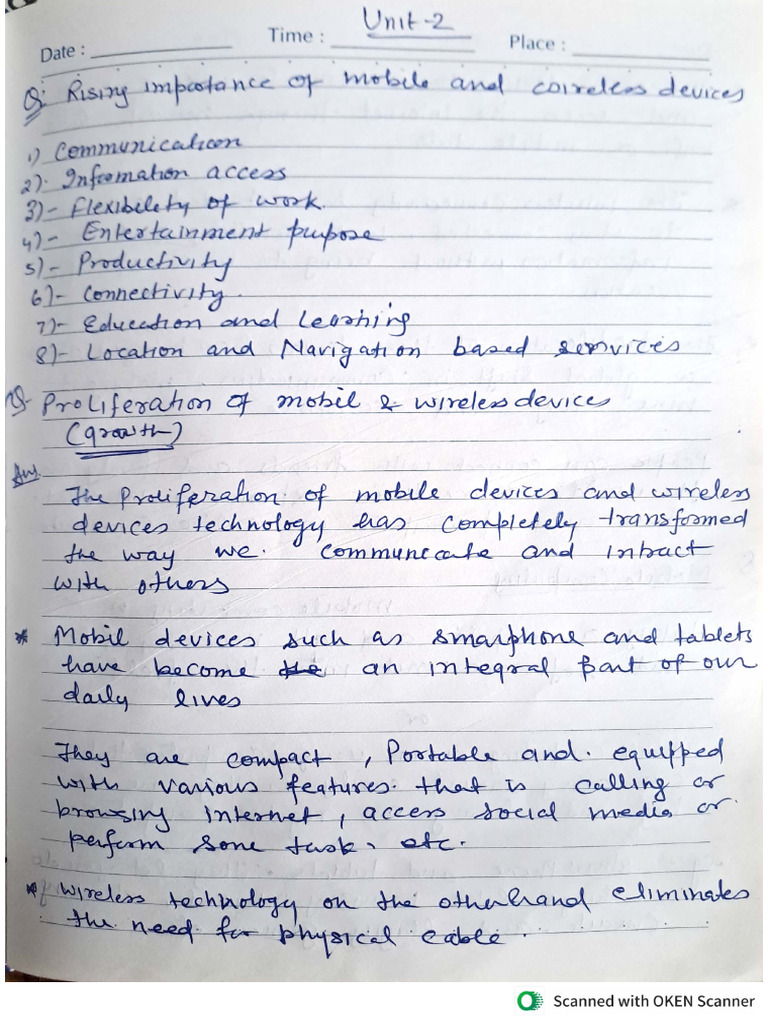 Unit-2
Date : Time : Place :
Q: Rising impotance of mobile and wireless devices
1) Communication
2) Infromation access
3)- Flexibility of work.
4)- Entertainment pupose
5)- Productivity
6)- Connectivity.
7)- Education and Learning
8)- Location and Navigation based services
Q- Proliferation of mobil & wireless devices
(growth)
Ans.
The Proliferation of mobile devices and wireless
devices technology has completely transformed
the way we. communicate and intract
with others
* Mobil devices such as smarphone and tablets
have become the an integral part of our
daily lives
They are compact, Portable and. equipped
with various features. that is calling or
browsing Internet, access social media or.
perform some task, etc.
* wireless technology on the otherhand eliminates
the need for physical cable.
Scanned with OKEN Scanner